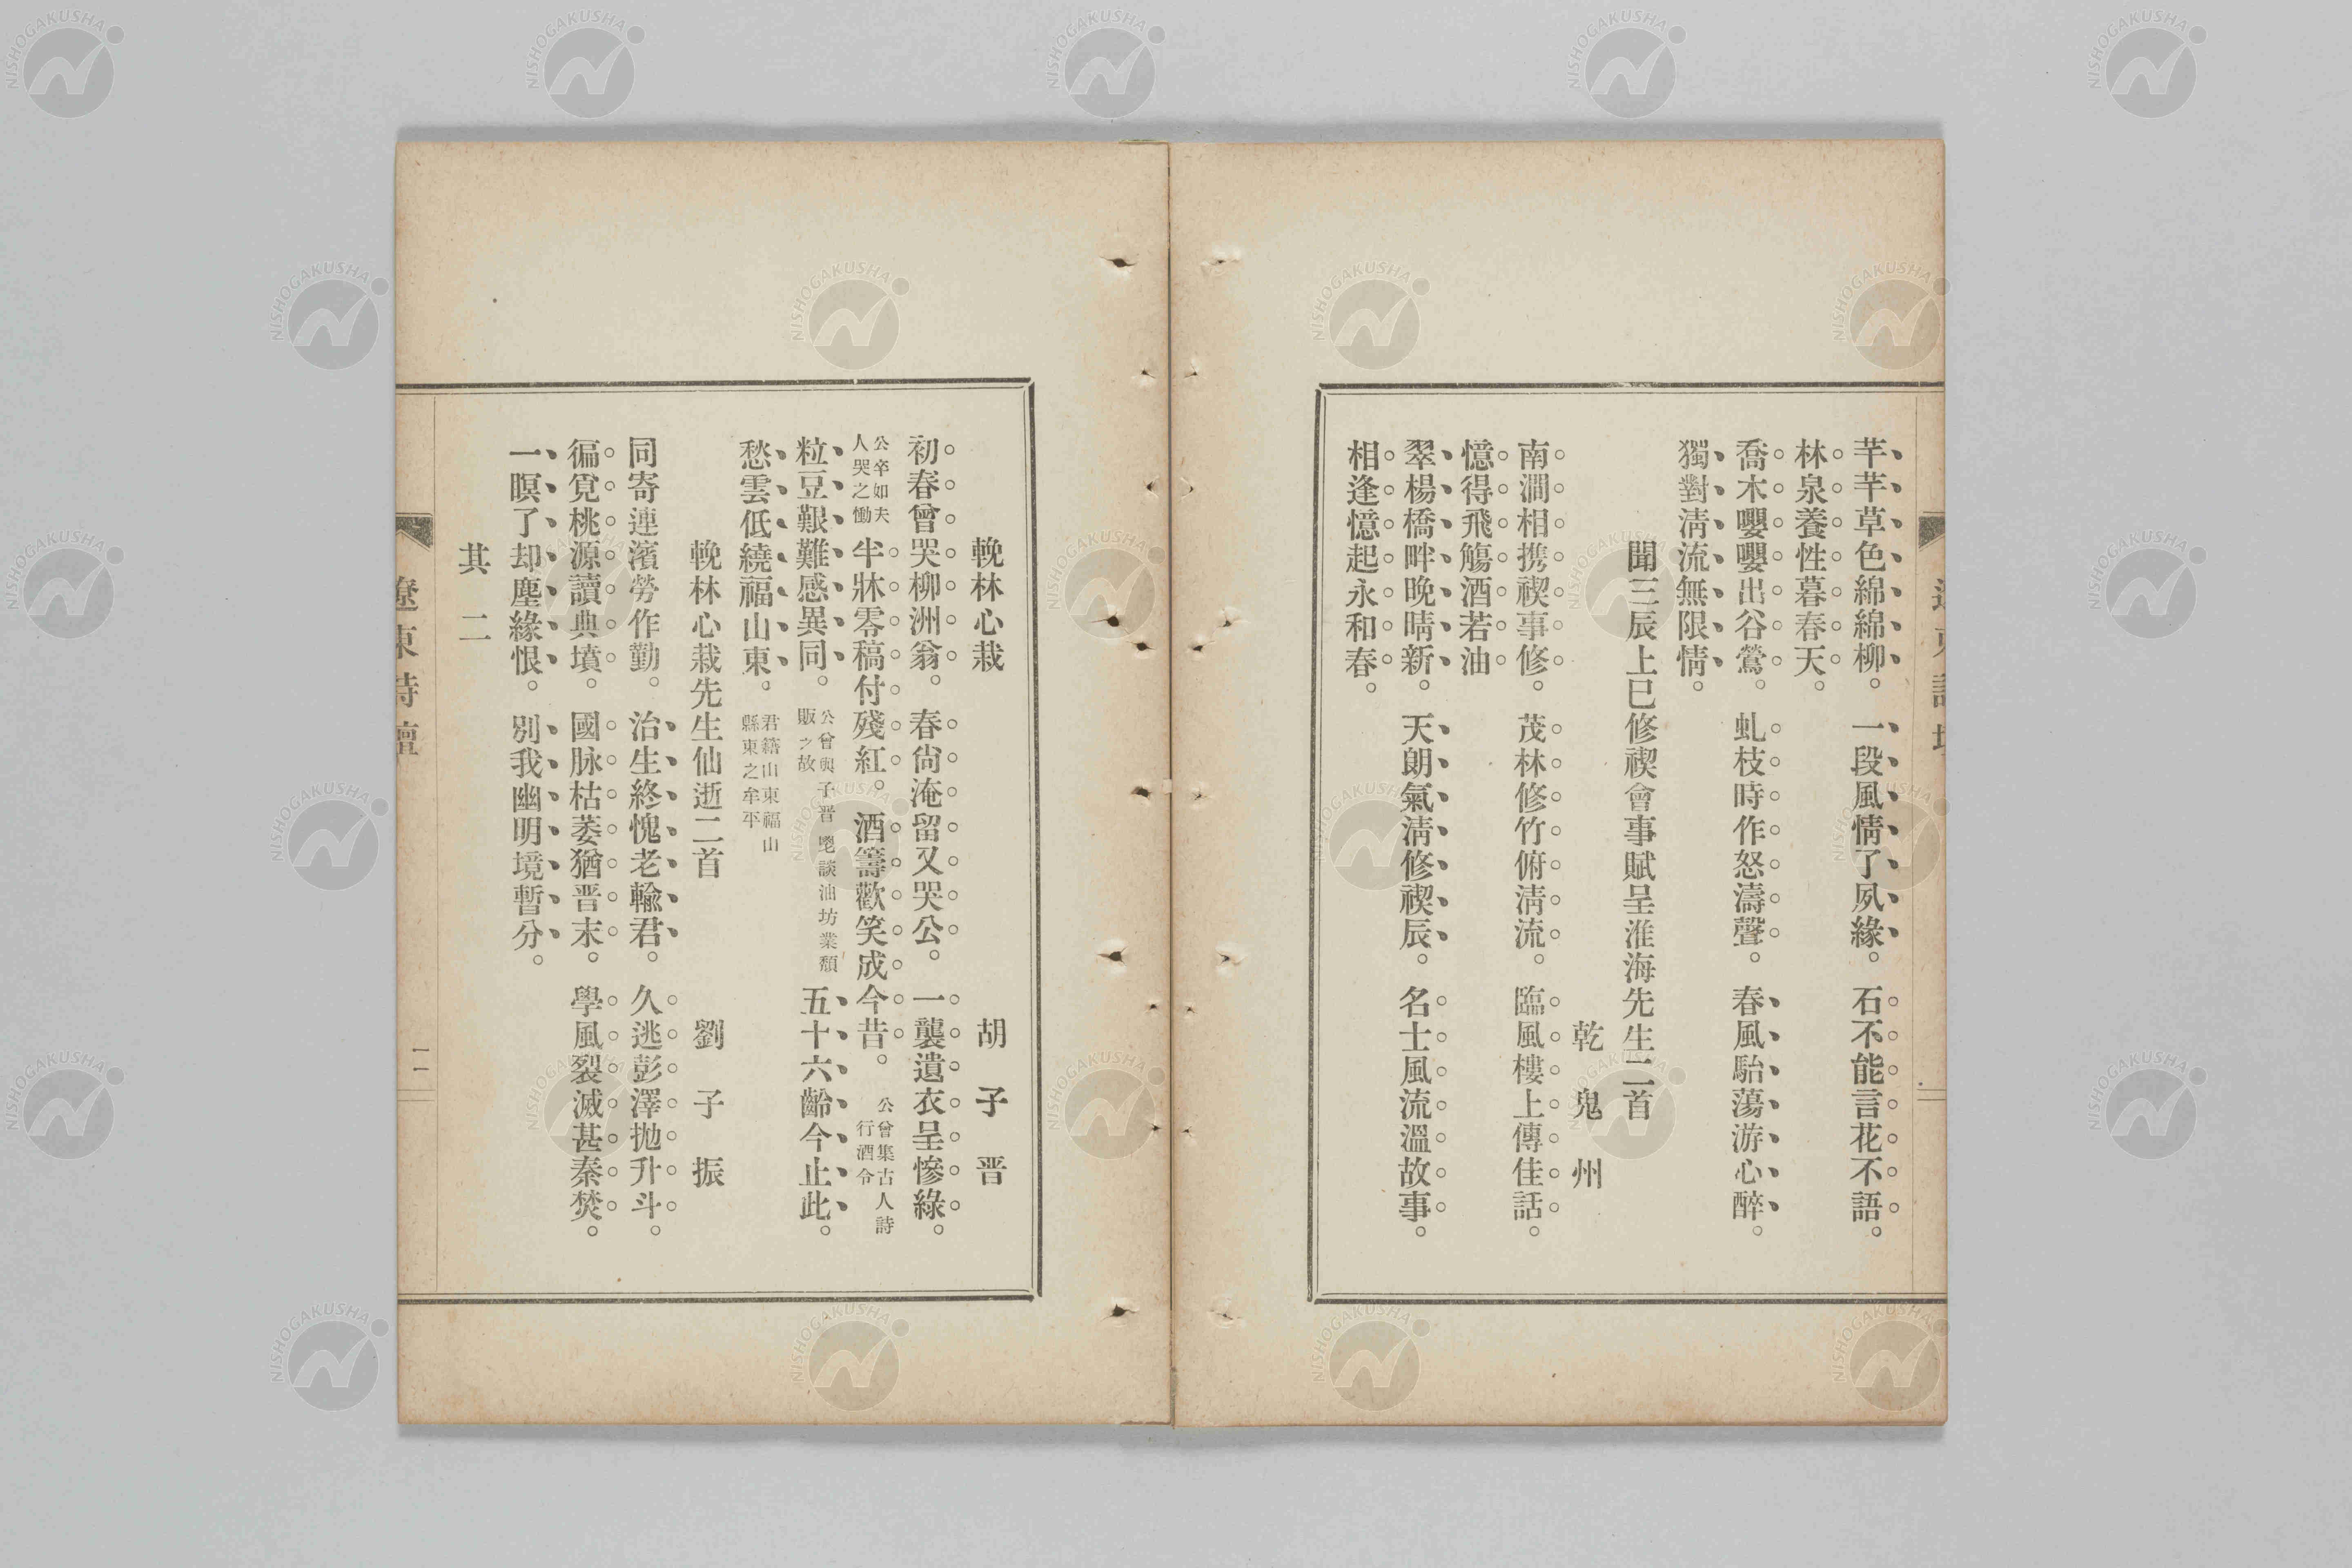 芊芊草色綿綿柳。一段風情了夙緣。石不能言花不語。
林泉養性暮春天。
喬木嚶嚶出谷鶯。虬枝時作怒濤聲。春風駘蕩游心醉。
獨對淸流無限情。
聞三辰上巳修禊會事賦呈淮海先生二首
乾鬼州
南澗相携禊事修。茂林修竹俯淸流。臨風樓上傳佳話。
憶得飛觴酒若油
翠楊橋畔晚晴新。天朗氣淸修禊辰。名士風流溫故事。
相逢憶起永和春。
輓林心栽 胡子晋
初春曾哭柳洲翁。春尙淹留又哭公。一襲遺衣呈慘綠。
公卒如夫人哭之慟 牛牀零稿付殘紅。酒籌歡笑成今昔。公曾集古人詩行酒令
粒豆艱難感異同。公曾與子晋談油坊業頹販之故 五十六齡今止此。
愁雲低繞福山東。君籍山東福山縣東之牟平
輓林心栽先生仙逝二首 劉子振
同寄連濱勞作勤。治生終愧老輸君。久逃彭澤拋升斗。
徧覓桃源讀典墳。國脉枯萎猶晋末。學風裂滅甚秦焚。
一瞑了却塵緣恨。別我幽明境暫分。
其二
遼東詩壇
一一
NISHOGAKUSHA